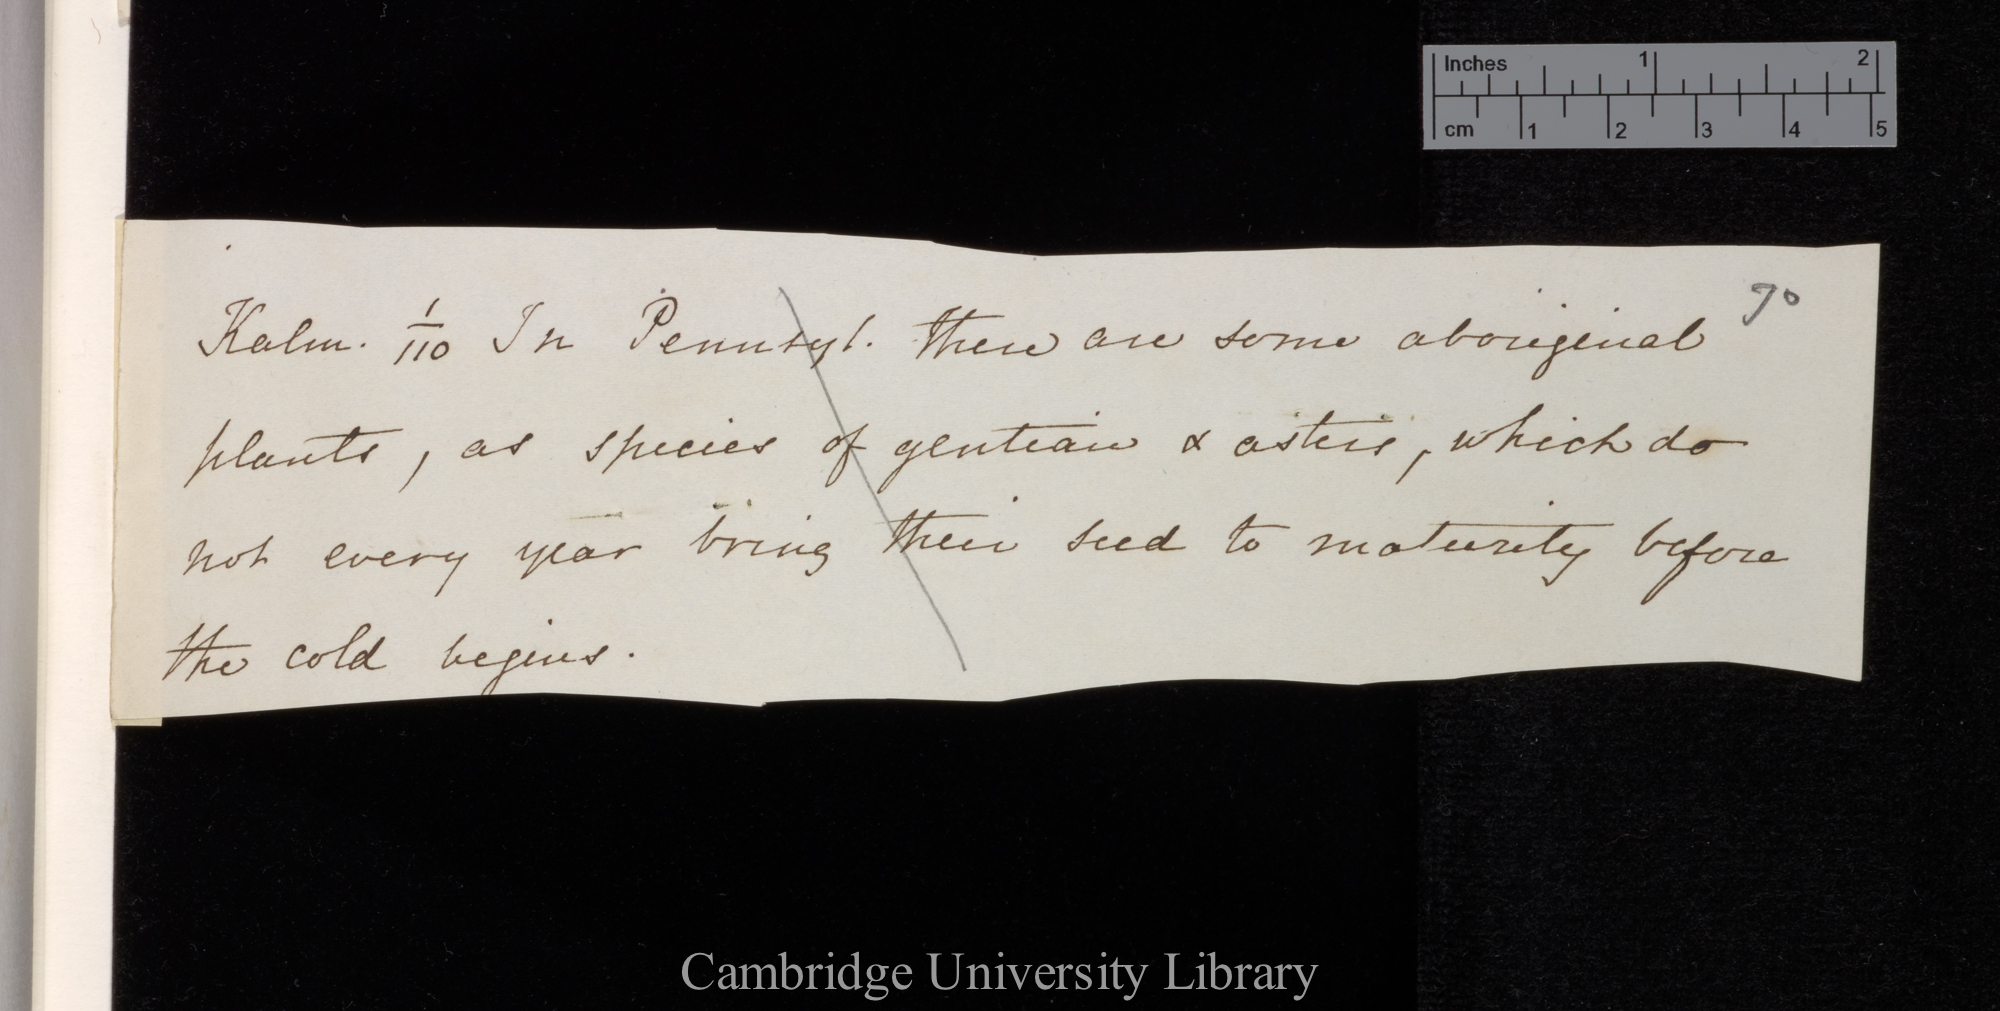 Inches 1 2
cm 1 2 3 4 5
70
Kalm. 1/110 In Pennsyl. there are some aboriginal
plants, as species of gentian & asters, which do
not every year bring their seed to maturity before
the cold begins.
Cambridge University Library